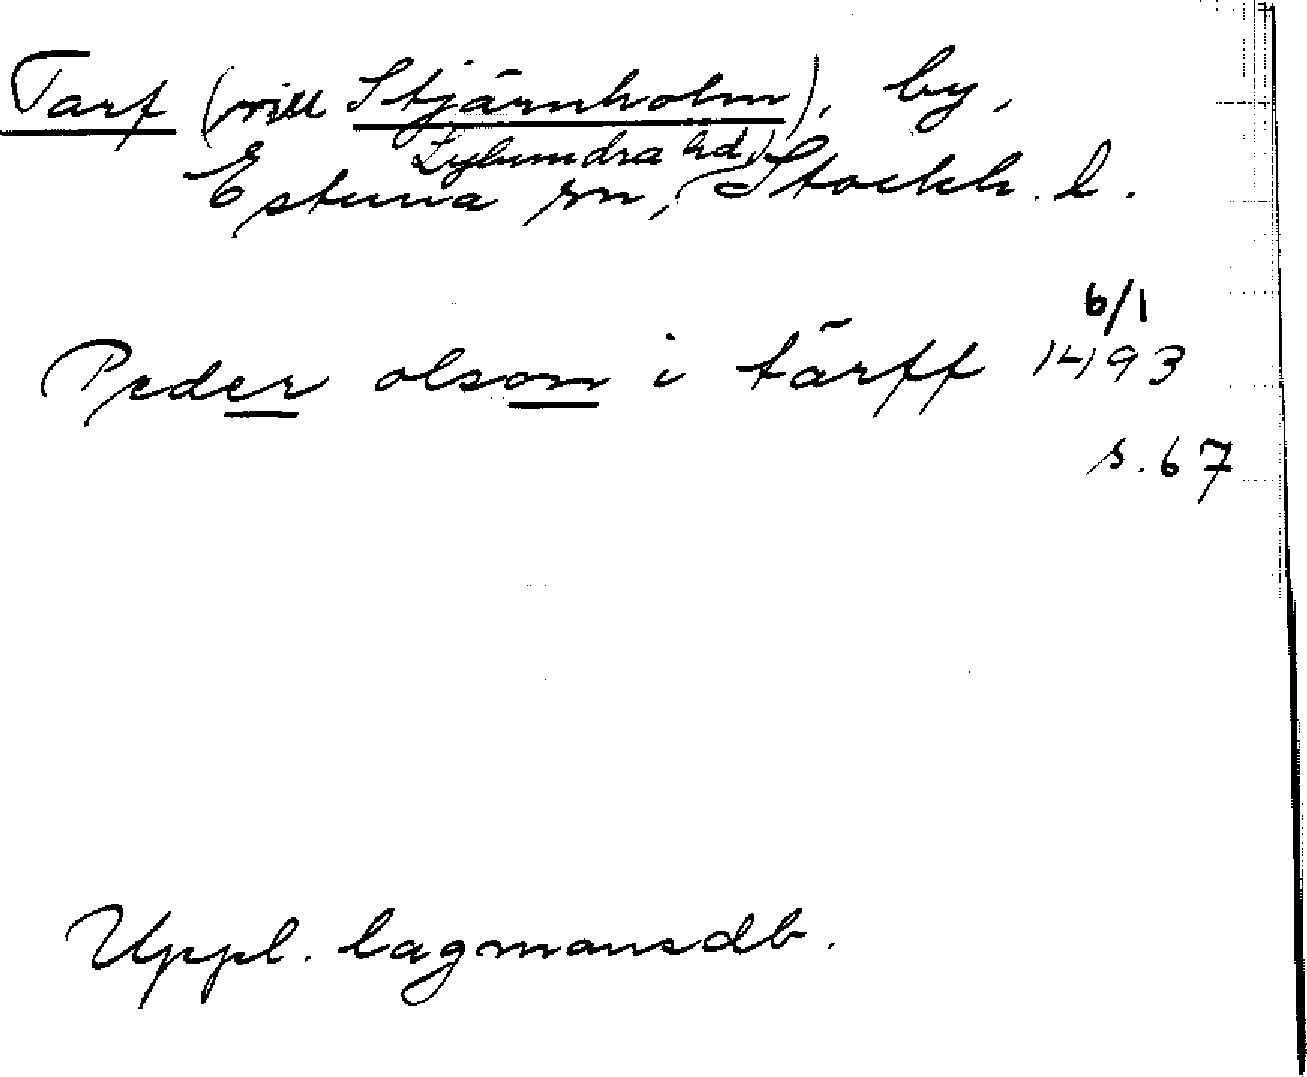 Tarf (nill Stjärnholm), by,
Lyhundra hd,
Estuna sn, Stockh. l.
6/1
Peder olsom i tärff 1493
s. 67
Uppl. lagmansdb.